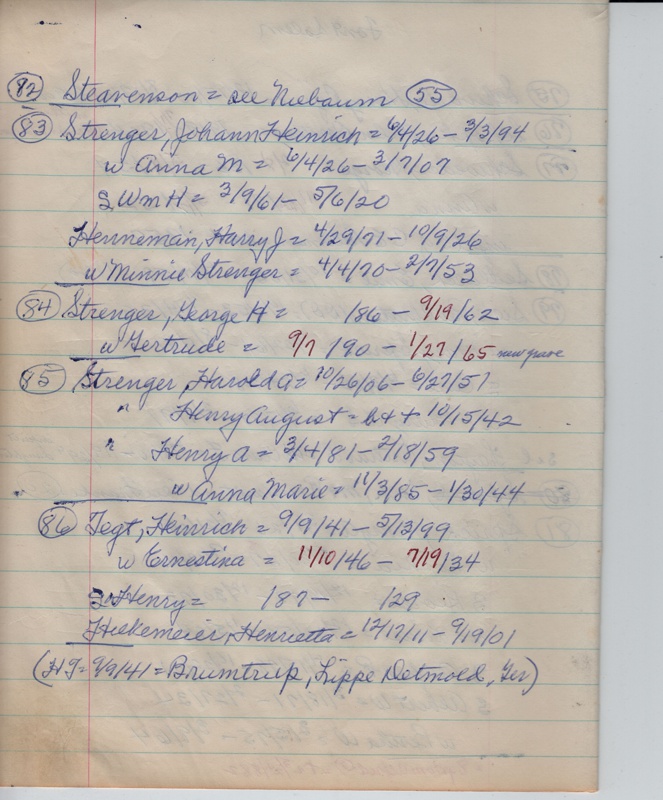 82 Steavenson = see Niebaum 55
83 Strenger, Johann Heinrich = 6/4/26 - 3/3/94
w Anna M = 6/4/26 - 3/7/07
S Wm H = 3/9/61 - 5/6/20
Henneman, Harry J = 4/29/71 - 10/9/26
w Minnie Strenger = 4/4/70 - 2/7/53
84 Strenger, George H = /86 - 9/19/62
w Gertrude = 9/7/90 - 1/27/65 new grave
85 Strenger, Harold A = 10/26/06 - 6/27/51
" Henry August = b++ 10/15/42
" - Henry A = 3/4/81 - 2/18/59
w Anna Marie = 11/3/85 - 1/30/44
86 Tegt, Heinrich = 9/9/41 - 5/13/99
w Ernestina = 11/10/46 - 7/19/34
S Henry = /87 - /29
Hiekemeier, Henrietta = 12/17/11 - 9/19/01
(HT = 9/9/41 = Brumtrup, Lippe Detmold, Ger)